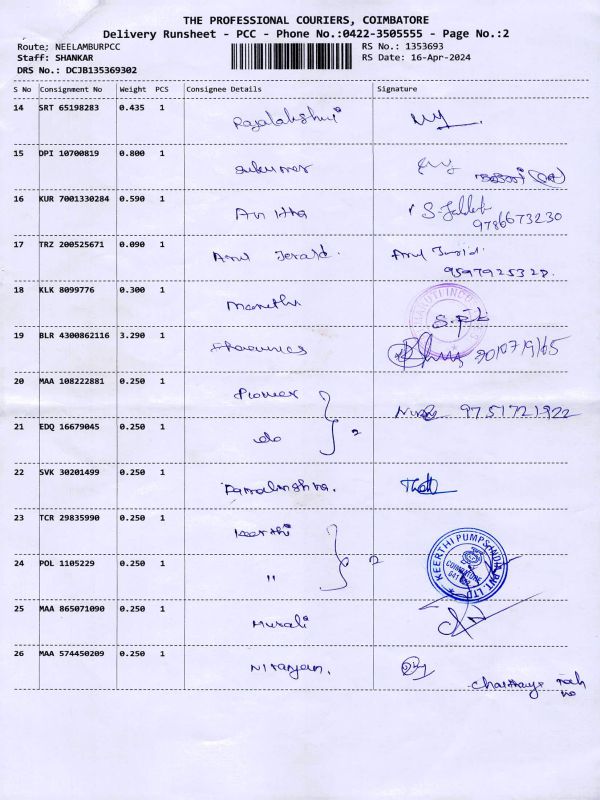 THE PROFESSIONAL COURIERS, COIMBATORE
Delivery Runsheet - PCC - Phone No.:0422-3505555 - Page No.:2
Route; NEELAMBURPCC
RS No.: 1353693
Staff: SHANKAR
RS Date: 16-Apr-2024
DRS No.: DCJB135369302
S No Consignment No Weight PCS Consignee Details Signature
14 SRT 65198283 0.435 1 Rajalakshmi
15 DPI 10700819 0.800 1 Sukumar
16 KUR 7001330284 0.590 1 Anitha
9786673230
17 TRZ 200525671 0.090 1 Arul Jerald.
9597925328.
18 KLK 8099776 0.300 1 Maruthi
MARUTI INDU
19 BLR 4300862116 3.290 1
20 MAA 108222881 0.250 1 Pioneer
9751721922
21 EDQ 16679045 0.250 1 do 2
22 SVK 30201499 0.250 1
23 TCR 29835990 0.250 1 Keerthi
KEERTHI PUMPS INDIA PVT. LTD
COIMBATORE
24 POL 1105229 0.250 1 " 2
25 MAA 865071090 0.250 1 Murali
26 MAA 574450209 0.250 1 Niranjan.